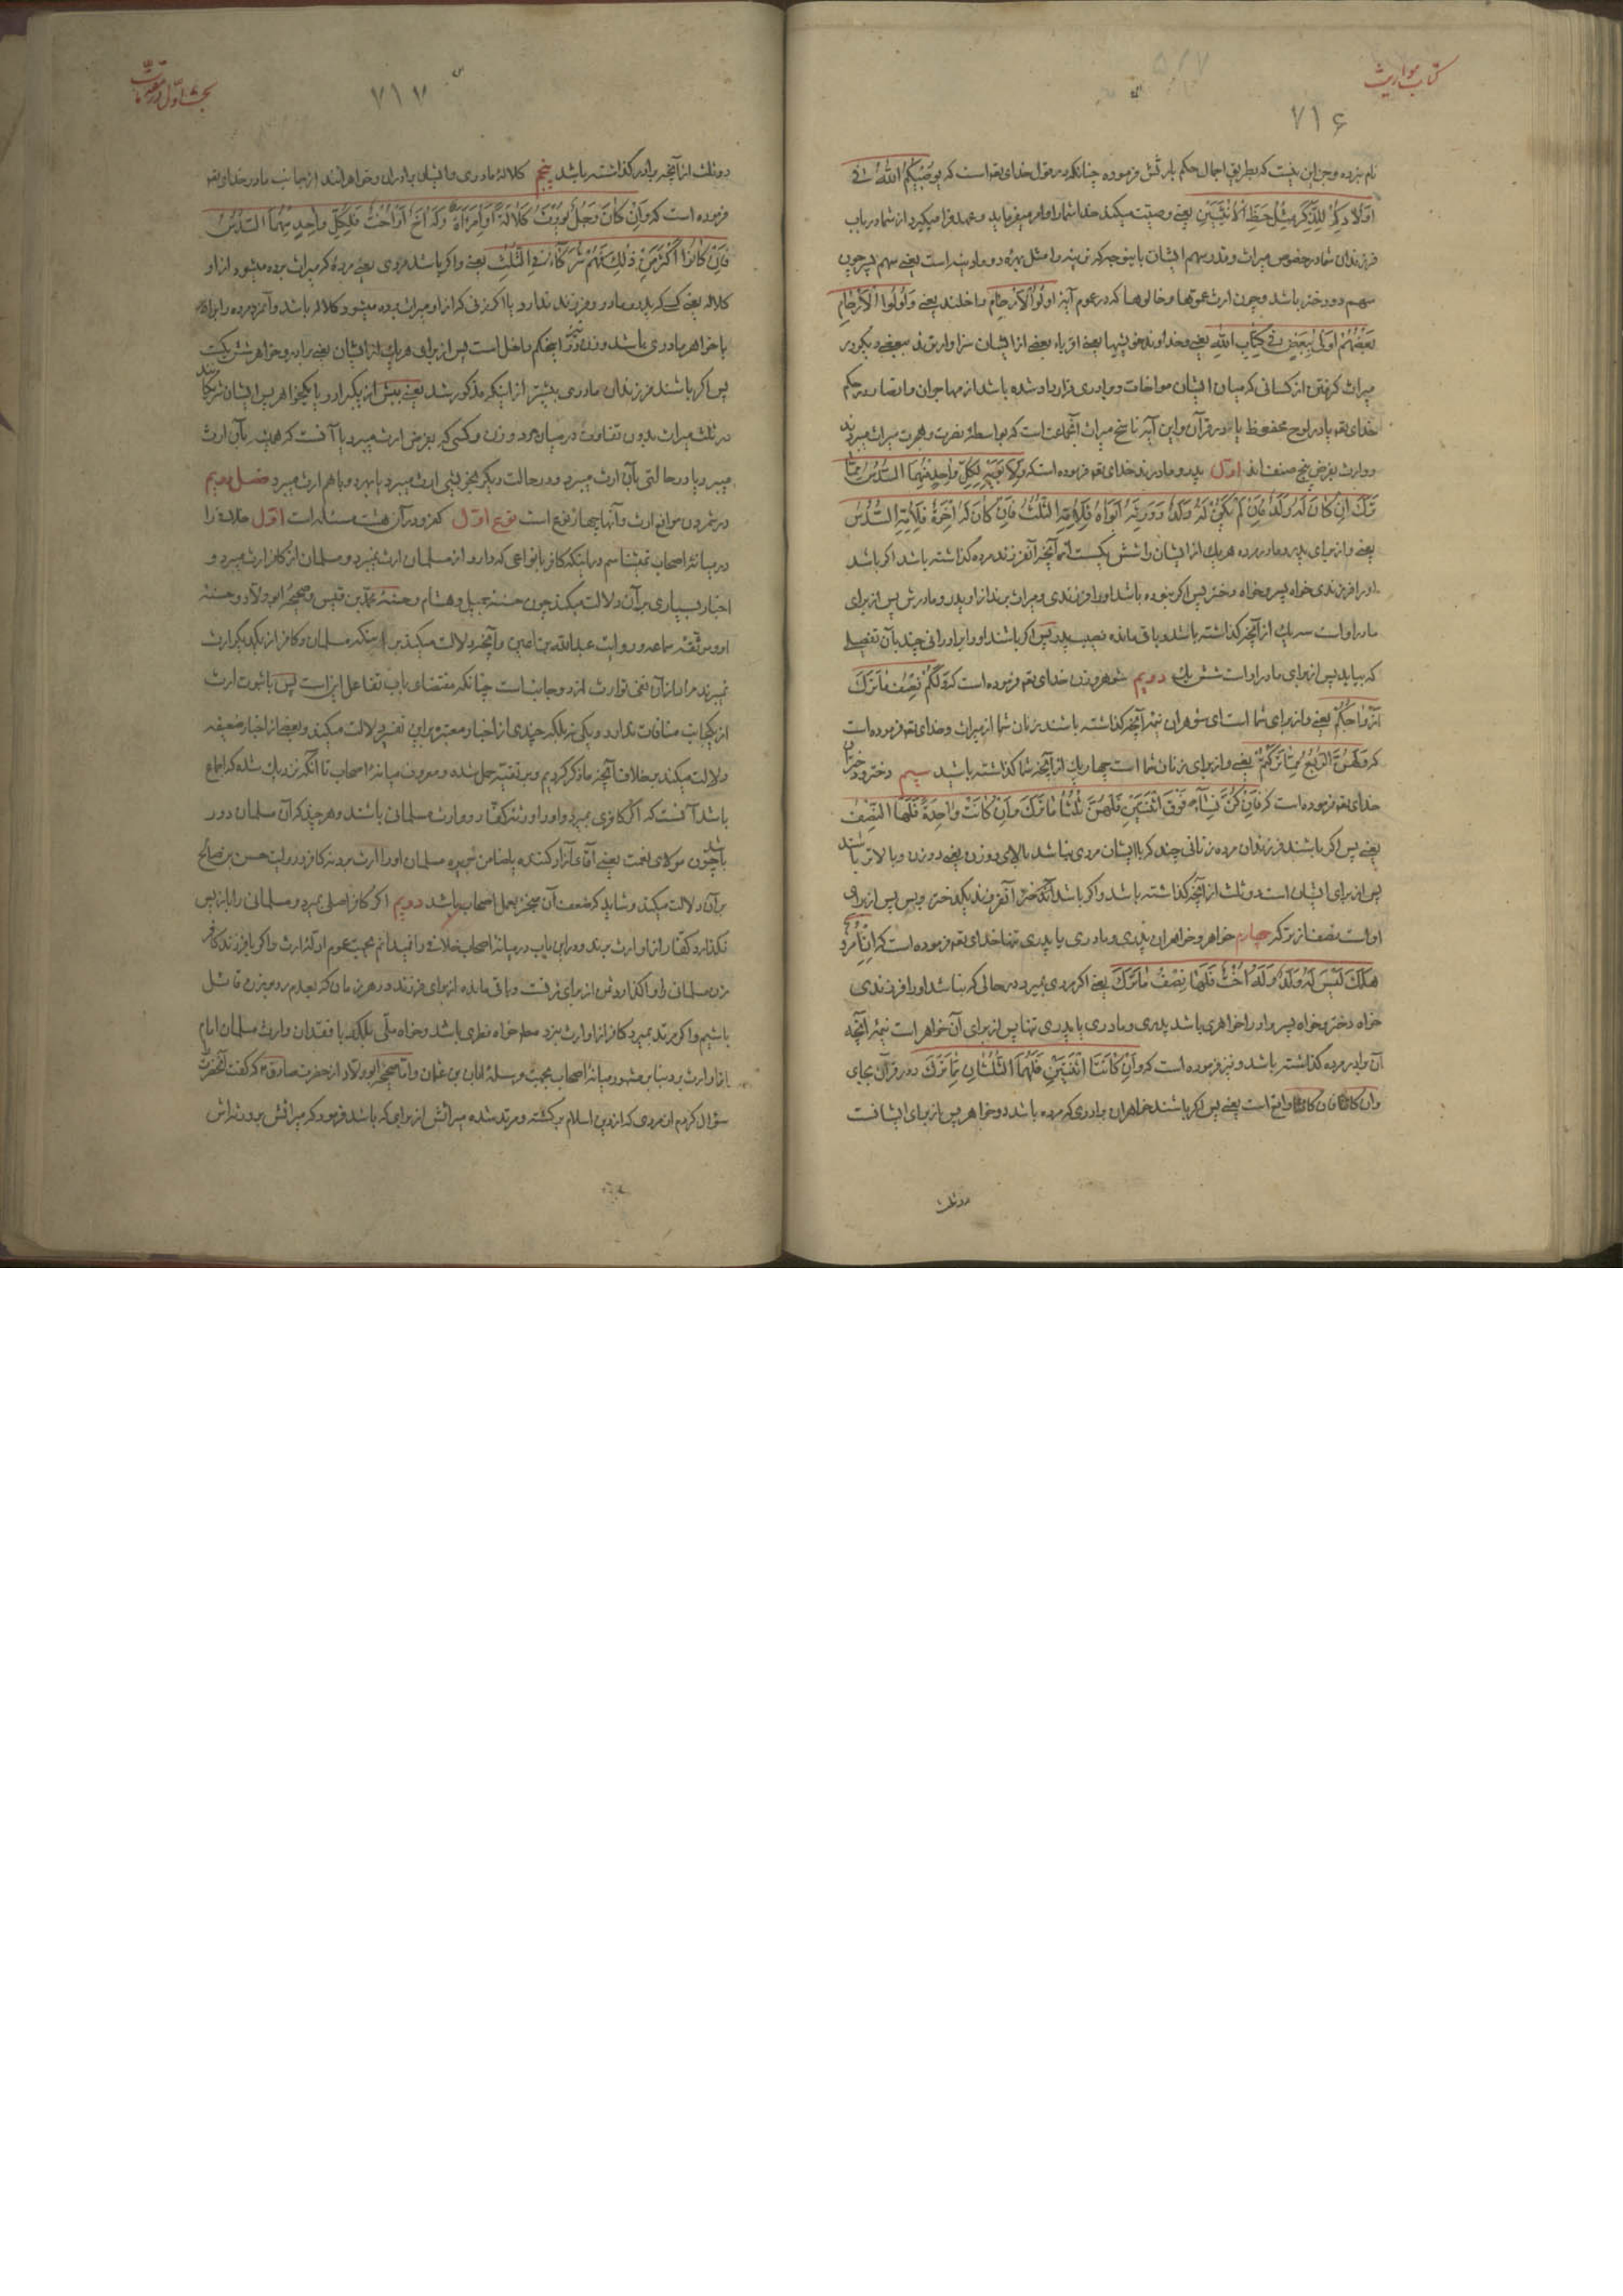 کتاب مواریث
۷۱۶
نام نبرده و جز این نیست که بطریق اجمال حکم بارثش فرموده چنانکه در قول خدای تعه است که یوصیکم الله فی
اولادکم للذکر مثل حظ الانثیین یعنی وصیت میکند خدا شما را و امر میفرماید و عهد فرا میگیرد از شما در باب
فرزندان شما در خصوص میراث و قدر سهم ایشان باینوجه که نرینه را مثل بهره دو مادینه است یعنی سهم پسر چون
سهم دو دختر باشد و چون ارث عموها و خالوها که در عموم آیه اولوا الارحام داخلند یعنی و اولوا الارحام
بعضهم اولی ببعض فی کتاب الله یعنی و خداوند خویشیها یعنی اقرباء بعضی از ایشان سزاوارترند ببعضی دیگر در
میراث گرفتن از کسانی که میان ایشان مواخات و برادری قرار داده شده باشد از مهاجران و انصار در حکم
خدای تعه یا در لوح محفوظ یا در قرآن و این آیه ناسخ میراث آنجماعت است که بواسطه نصرت و هجرت میراث میبردند
و وارث بفرض پنج صنف اند اول پدر و مادرند خدای تعه فرموده است که و لابویه لکل واحد منهما السدس مما
ترک ان کان له ولد فان لم یکن له ولد و ورثه ابواه فلامه الثلث فان کان له اخوة فلامه السدس
یعنی و از برای پدر و مادر مرده هر یک از ایشان را شش یکست از آنچه آنفرزند مرده گذاشته باشد اگر باشد
او را فرزندی خواه پسر و خواه دختر پس اگر نبوده باشد او را فرزندی و میراث برند از او پدر و مادرش پس از برای
مادر او است سه یک از آنچه گذاشته باشد و باقی مانده نصیب پدر پس اگر باشند او را برادرانی چند بآن تفصیلی
که بیاید پس از برای مادر او است شش یک دویم شوهر و زن خدای تعه فرموده است که و لکم نصف ما ترک
ازواجکم یعنی و از برای شما است ای شوهران نیمه آنچه گذاشته باشند زنان شما از میراث و خدای تعه فرموده است
که و لهن الربع مما ترکتم یعنی و از برای زنان شما است چهار یک از آنچه شما گذاشته باشید سیم دختر و دختران
خدای تعه فرموده است که فان کن نساء فوق اثنتین فلهن ثلثا ما ترک و ان کانت واحدة فلها النصف
یعنی پس اگر باشند فرزندان مرده زنانی چند که با ایشان مردی نباشد بالای دو زن یعنی دو زن و بالاتر باشند
پس از برای ایشان است دو ثلث از آنچه گذاشته باشد و اگر باشد آنفرزند یکدختر و بس پس از برای
او است نصف از ترکه چهارم خواهر و خواهران پدری و مادری یا پدری تنها خدای تعه فرموده است که ان امرؤ
هلک لیس له ولد و له اخت فلها نصف ما ترک یعنی اگر مردی بمیرد در حالی که نباشد او را فرزندی
خواه دختر و خواه پسر و او را خواهری باشد پدری و مادری یا پدری تنها پس از برای آن خواهر است نیمه آنچه
آن برادر مرده گذاشته باشد و نیز فرموده است که و ان کانتا اثنتین فلهما الثلثان مما ترک در قرآن بجای
و ان کانتا فان کانتا واقع است یعنی پس اگر باشند خواهران برادری که مرده باشد دو خواهر پس از برای ایشانست
دو ثلث
بحث اول در مقدمات
۷۱۷
دو ثلث از آنچه برادر گذاشته باشد پنجم کلاله مادری و ایشان برادران و خواهرانند از جانب مادر خدای تعه
فرموده است که و ان کان رجل یورث کلالة او امراة و له اخ او اخت فلکل واحد منهما السدس
فان کانوا اکثر من ذلک فهم شرکاء فی الثلث یعنی و اگر باشد مردی یعنی مرده که میراث برده میشود از او
کلاله یعنی کسی که پدر و مادر و فرزند ندارد یا اگر زنی که از او میراث برده میشود کلاله باشد و آنمرد مرده را برادر
یا خواهر مادری باشد و زن نیز در اینحکم داخل است پس از برای هر یک از ایشان یعنی برادر و خواهر شش یکست
پس اگر باشند فرزندان مادری بیشتر از اینکه مذکور شد یعنی بیش از یکبرادر و یا یکخواهر پس ایشان شرکااند
در ثلث میراث بدون تفاوت در میان مرد و زن و کسی که بفرض ارث میبرد یا آنست که همیشه بآن ارث
میبرد یا در حالتی بآن ارث میبرد و در حالت دیگر بخویشی ارث میبرد یا بهر دو با هم ارث میبرد فصل دویم
در شمردن موانع ارث و آنها چهار نوع است نوع اول کفر و در آن هشت مسئله است اول خلاف را
در میانه اصحاب نمیشناسم در اینکه کافر بانواعی که دارد از مسلمان ارث نمیبرد و مسلمان از کافر ارث میبرد و
اخبار بسیاری بر آن دلالت میکند چون حسنه جمیل و هشام و حسنه محمد بن قیس و صحیحه ابو ولاد و حسنه
او و موثقه سماعه و روایت عبدالله بن اعین و آنچه دلالت میکند بر اینکه مسلمان و کافر از یکدیگر ارث
نمیبرند مراد از آن نفی توارث از دو جانب است چنانکه مقتضای باب تفاعل این است پس با ثبوت ارث
از یکجانب منافات ندارد و یکی نه بلکه چندی از اخبار معتبره بر این تفسیر دلالت میکند و بعضی از اخبار ضعیفه
دلالت میکند بر خلاف آنچه ما ذکر کردیم و بر تقیه حمل شده و معروف میانه اصحاب تا آنکه نزدیک شده که اجماع
باشد آنست که اگر کافری بمیرد و او را ورثه کفار و وارث مسلمانی باشند و هر چند که آن مسلمان دور
باشد چون مولای نعمت یعنی آقای آزاد کننده یا ضامن جریره مسلمان او را ارث برد نه کافر و روایت حسن بن صالح
بر آن دلالت میکند و شاید که ضعف آن منجبر بعمل اصحاب باشد دویم اگر کافر اصلی بمیرد و مسلمانی را باز پس
نگذارد کفار از او ارث برند و در این باب در میانه اصحاب خلاف را نمیدانم بجهت عموم ادله ارث و اگر با فرزند کافر
زن مسلمانی را واگذارد ثمن از برای زنست و باقی مانده از برای فرزند و در هر زمان که بعدم رد بر زن قائل
باشیم و اگر مرتد بمیرد کافر از او ارث نبرد مطلقا خواه فطری باشد و خواه ملی بلکه با فقدان وارث مسلمان امام
از او ارث برد بنابر مشهور میانه اصحاب بجهت مرسله ابان بن عثمان و اما صحیحه ابو ولاد از حضرت صادق ع که گفت آنحضرت را
سؤال کردم از مردی که از دین اسلام برگشته و مرتد شده میراثش از برای که باشد فرمود که میراثش بر ورثه اش